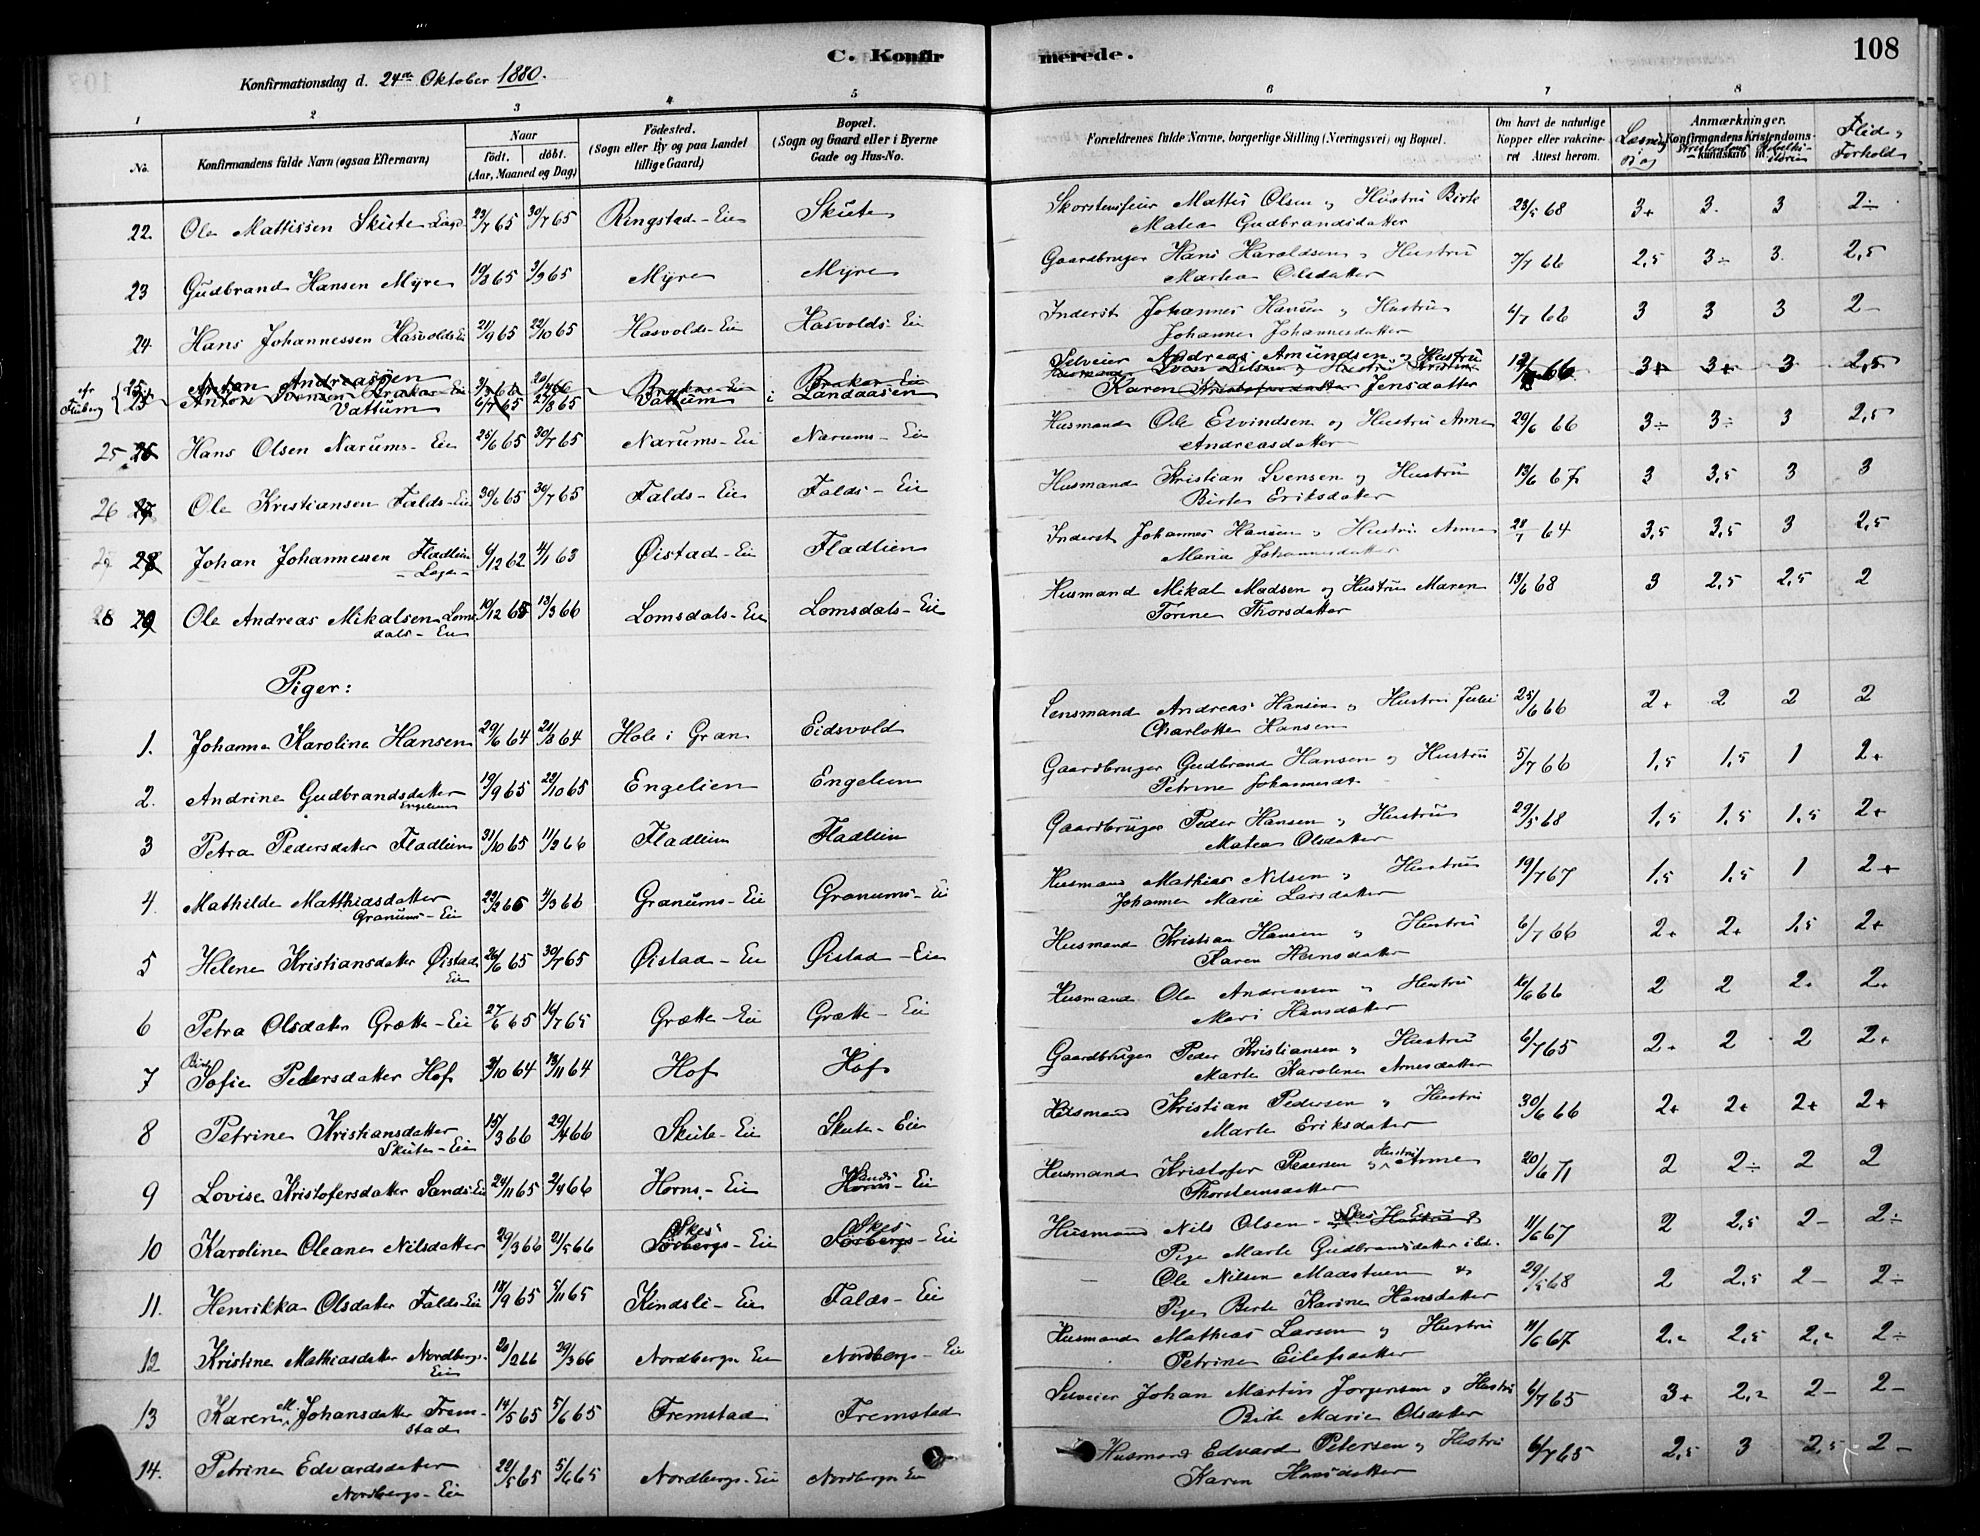 C. Konfirmerede.
108
Konfirmationsdag d. 24de Oktober 1880.
1 2 3 4 5 6 7 8
No.
Konfirmandens fulde Navn (ogsaa Efternavn)
Naar
født. døbt.
(Aar, Maaned og Dag)
Fødested.
(Sogn eller By og paa Landet
tillige Gaard)
Bopæl.
(Sogn og Gaard eller i Byerne
Gade og Hus-No.
Forældrenes fulde Navne, borgerlige Stilling (Næringsvei) og Bopæl.
Om havt de naturlige
Kopper eller vakcine-
ret Attest herom.
Anmærkninger.
Konfirmandens Kristendoms-
kundskab
Flid &
Forhold
22. Ole Mattissen Skute 23/7 65 30/7 65 Ringstad-Eie Skute Skorstensfeier Mattis Olsen & Hustru Birte 23/5 68 3+ 3 3 2÷
Matea Gudbrandsdatter
23 Gudbrand Hansen Myre 19/8 65 3/9 65 Myre Myre Gaardbruger Hans Haroldsen & Hustru 7/7 66 2,5 3÷ 3 2,5
Martea Olsdatter
24. Hans Johannessen Hasvolds-Ei 21/9 65 22/10 65 Hasvolds-Eie Hasvolds-Eie Inderst Johannes Hansen & Hustru 4/7 66 3 3 3 2-
Johanne Johannesdatter
25 Anton Andreassen Vattum 6/7 65 27/8 65 Vattum i Landaasen Selveier Andreas Amundsen & Hustru 66 3+ 3+ 3 2,5
Karen Jensdatter
25 26 Hans Olsen Narums-Eie 25/6 65 30/7 65 Narums-Eie Narums-Eie Husmand Ole Eivindsen og Hustru Anne 29/6 66 3÷ 3÷ 3 2,5
Andreasdatter
26 27 Ole Kristiansen Falds-Eie 30/6 65 30/7 65 Falds-Eie Falds-Eie Husmand Kristian Svensen & Hustru 13/6 67 3 3,5 3 3
Birte Eriksdatter
27 28 Johan Johannessen Fladlien 6/12 62 4/1 63 Øistad-Eie Fladlien Inderst Johannes Hansen & Hustru Anne 64 3,5 3,5 3 2,5
Maria Johannesdatter
28 29 Ole Andreas Mikalsen Loms- 10/12 65 13/3 66 Lomsdals-Eie Lomsdals-Eie Husmand Mikal Madsen og Hustru Maren 13/6 68 3 2,5 2,5 2
dals-Eie Torine Thorsdatter
Piger:
1. Johanne Karoline Hansen 29/6 64 21/8 64 Hole i Gran Eidsvold Lensmand Andreas Hansen & Hustru Julie 25/6 66 2+ 2 2 2
Charlotte Hansen
2. Andrine Gudbrandsdatter 19/9 65 22/10 65 Engelien Engelien Gaardbruger Gudbrand Hansen & Hustru 5/7 66 1,5 1,5 1 2+
Engelien Petrine Johannesdt
3 Petra Pedersdatter Fladlien 31/10 65 11/2 66 Fladlien Fladlien Gaardbruger Peder Hansen & Hustru 29/5 68 1,5 1,5 1,5 2+
Matea Olsdatter
4. Mathilde Mathiasdatter 4/3 66 Granums-Eie Granums-Ei Husmand Mathias Nilsen & Hustru 19/7 67 1,5 1,5 1 2+
Granums-Eie Johanne Marie Larsdatter
5 Helene Kristiansdatter Øistad 26/6 65 30/7 65 Øistad-Eie Øistad-Eie Husmand Kristian Hansen & Hustru 6/7 66 2+ 2+ 1,5 2+
Eie Karen Hansdatter
6 Petra Olsdatter Grætte-Eie 27/6 65 16/7 65 Grætte-Eie Grætte-Eie Husmand Ole Andreassen & Hustru 16/6 66 2 2 2. 2+
Mari Hansdatter
7 Sofie Pedersdatter Hof 3/10 64 13/11 64 Hof Hof Gaardbruger Peder Kristiansen & Hustru 6/7 65 2+ 2 2 2+
Marte Karoline Arnesdatter
8 Petrine Kristiansdatter 15/3 66 29/4 66 Skute-Eie Skute-Eie Husmand Kristian Pedersen & Hustru 30/6 66 2+ 2+ 2+ 2+
Skute-Eie Marte Eriksdatter
9 Lovise Kristofersdatter Sands-Eie 24/11 65 2/4 66 Horns-Eie Sands-Eie Husmand Kristofer Pedersen & Hustru Anne 20/6 71 2 2÷ 2 2
Thorstensdatter
10 Karoline Oleane Nilsdatter 29/3 66 21/5 66 Skes-Eie Skes-Eie Husmand Nils Olsen 11/6 67 2 2,5 2- 2÷
Pige Marte Gudbrandsdatter
11. Henrikka Olsdatter Falds-Eie 18/9 65 5/11 65 Kindsli-Eie Falds-Eie - Ole Nilsen Madstuen & 29/5 68 2 2,5 2- 2÷
Pige Berte Karine Hansdatter
12 Kristine Mathiasdatter Nordbergs- 20/2 66 29/3 66 Nordbergs-Eie Nordbergs-Eie Husmand Mathias Larsen & Hustru 11/6 67 2÷ 2,5 2÷ 2÷
Eie Petrine Eilefsdatter
13 Karen M. Johansdatter Frem- 14/5 65 5/6 65 Fremstad Fremstad Selveier Johan Martin Jørgensen & Hustru 6/7 65 3+ 2÷ 2- 2-
stad Birte Marie Olsdatter
14. Petrine Edvardsdatter 22/5 65 5/6 65 Nordbergs-Eie Nordbergs-Eie Husmand Edvard Petersen & Hustru 6/7 65 2,5 3 2,5 2-
Nordbergs-Eie Karen Hansdatter